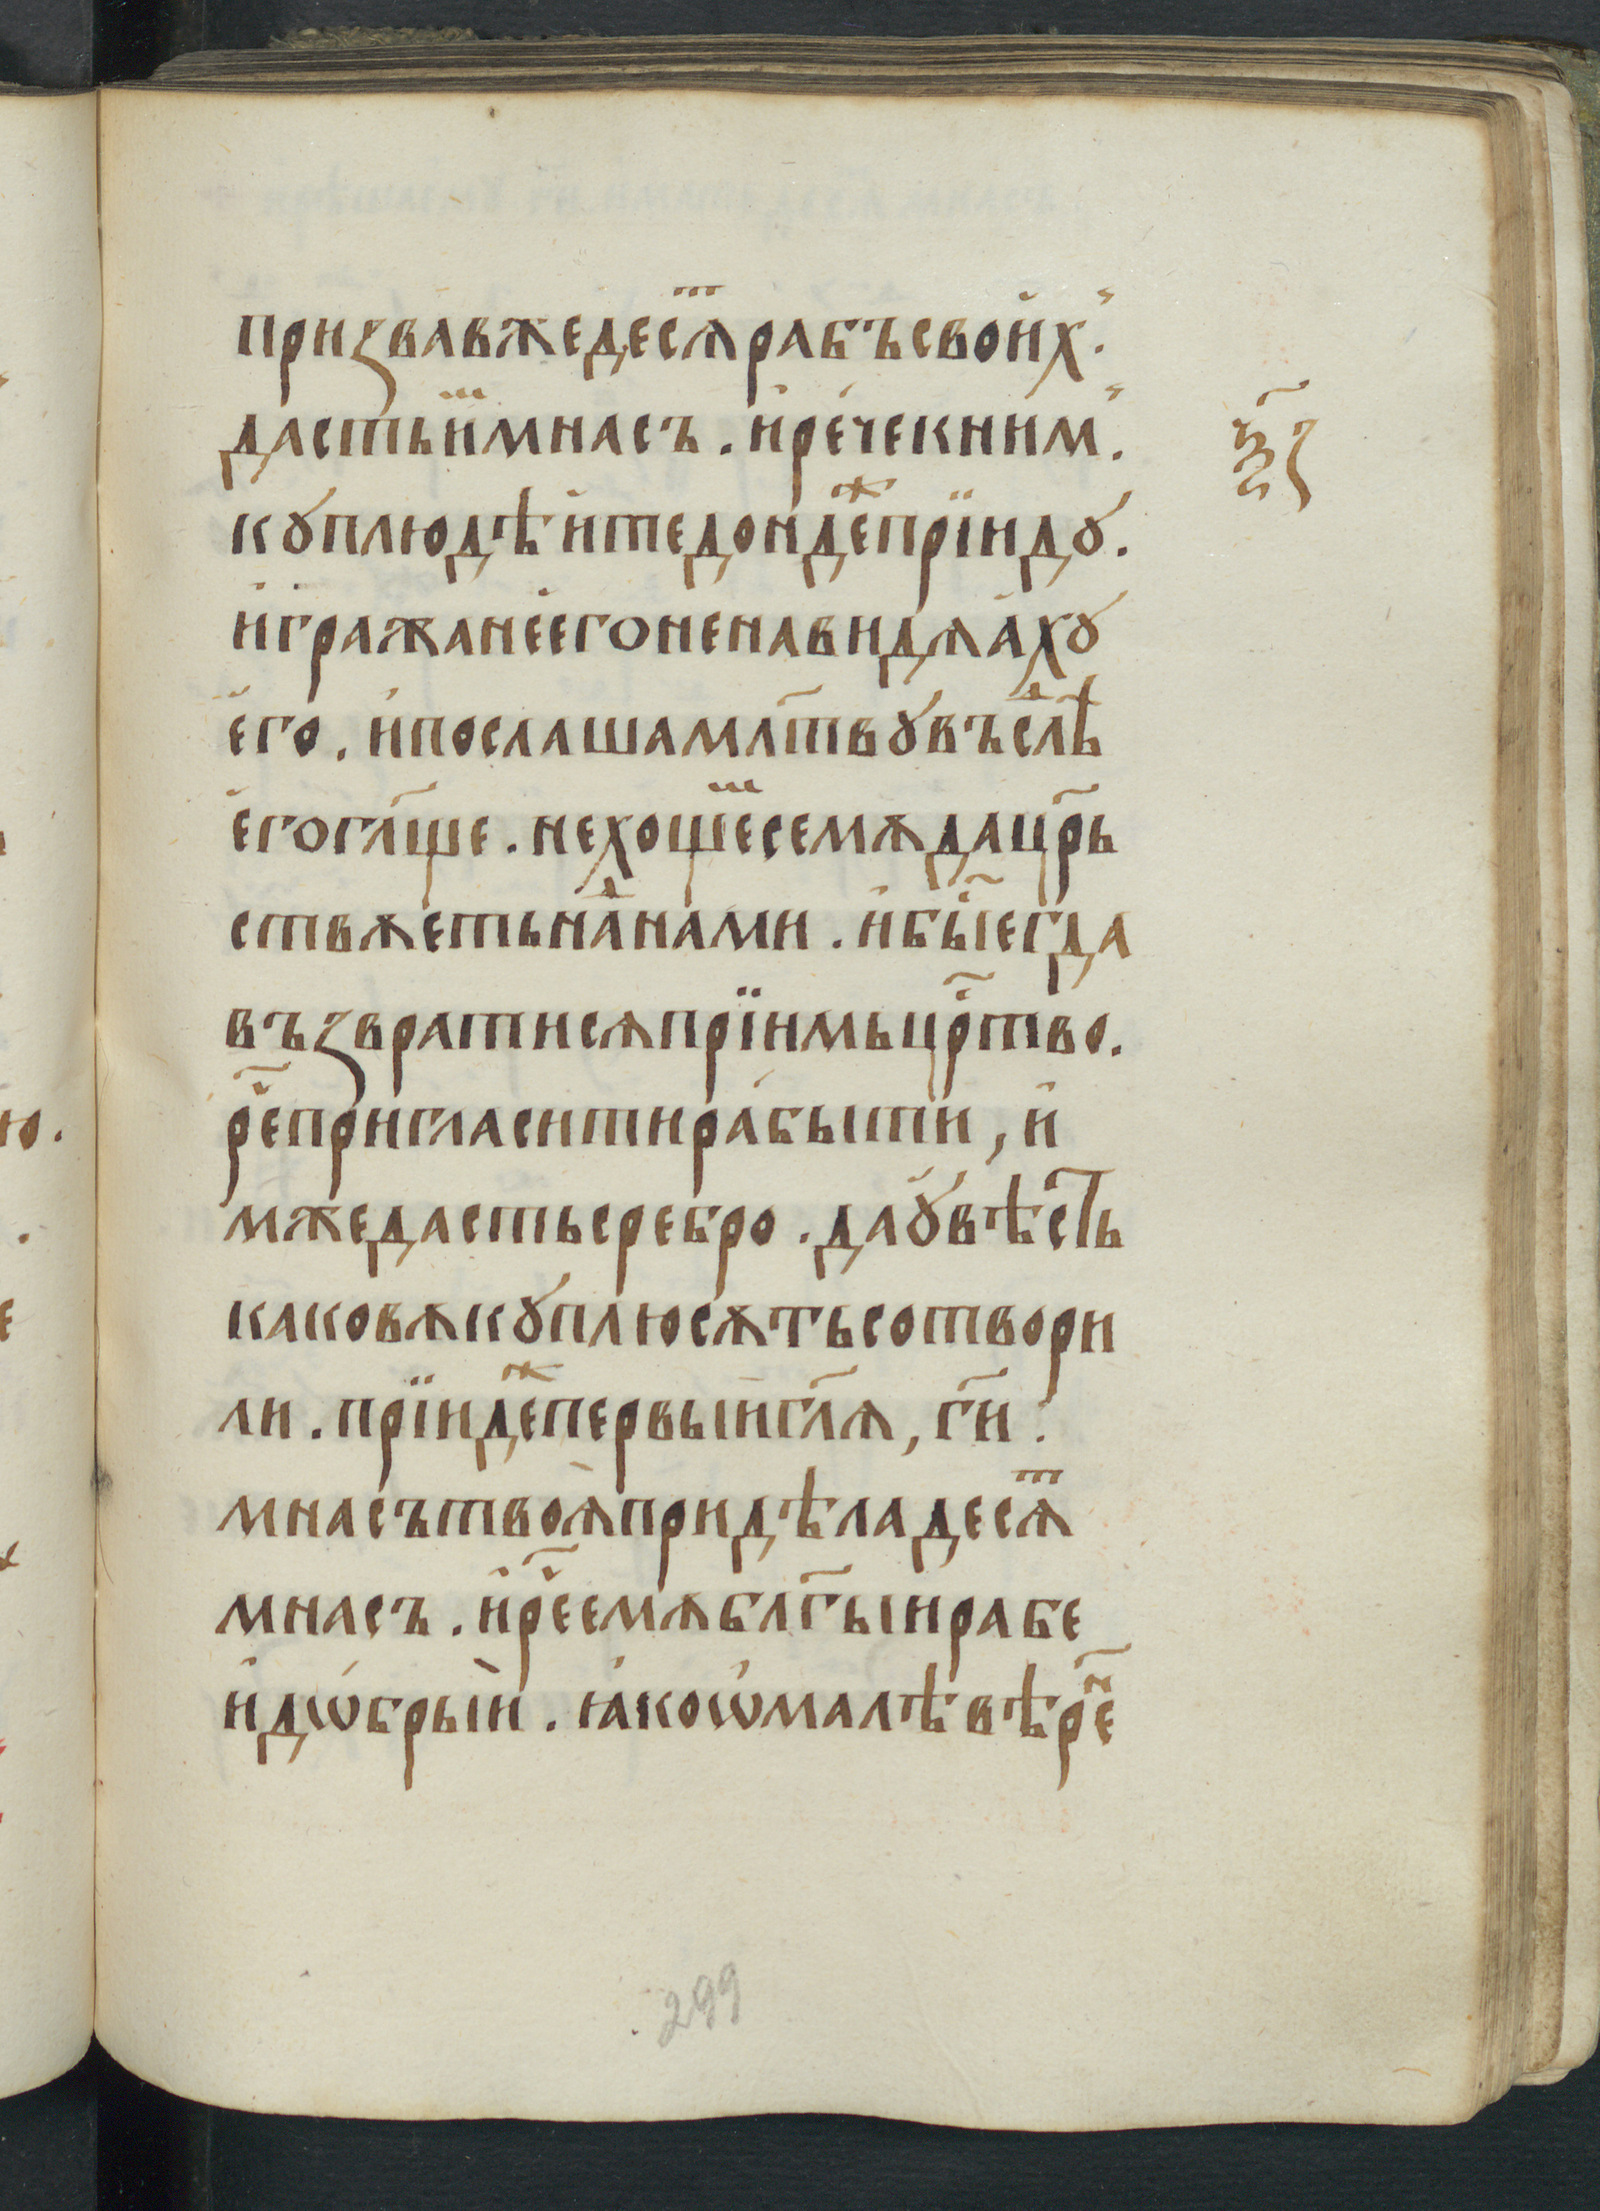 призвавжедесѧ҇ⷮрабъсвоих.
дастьиⷨмнасъ. ирⷱечекним.
кꙋплюдѣитедондеⷤприїндꙋ.
играженеегоненавидѧахꙋ
его. ипослашамл҃твꙋвъслѣⷣ
егогл҃ще. нехощеⷨсемѫдацр҃ь
ствꙋетьнаⷣнами. ибыⷭ҇егда
възвратисѧпрїимьцрⷭ҇тво.
реⷱ҇пригласитирабыти, и
мжедастьсребро. даꙋвѣсть
каковѫкꙋплюсѫтьсотвори
ли. прїидеⷤпервыигл҃ѧ, ги҃.
мнасътвоѧпридѣладесѧⷮ
мнасъ. иреⷱ҇емѫблг҃ыирабе
идѡбрыи. ꙗкоѡмалѣвѣреⷩ҇
ѯ҃з
299